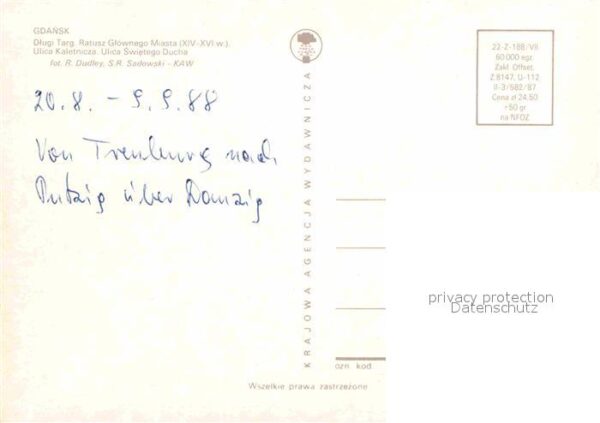 GDAŃSK
Długi Targ. Ratusz Głównego Miasta (XIV-XVI w.).
Ulica Kaletnicza. Ulica Świętego Ducha
fot. R. Dudley, S.R. Sadowski - KAW
20.8. - 9.9.88
Von Treuburg nach
Putzig über Danzig
KRAJOWA AGENCJA WYDAWNICZA
22-Z-188/VII
60 000 egz.
Zakł. Offset.
Z.8147, U-112
II-3/582/87
Cena zł 24,50
+ 50 gr
na NFOZ
privacy protection
Datenschutz
ozn kod
Wszelkie prawa zastrzeżone